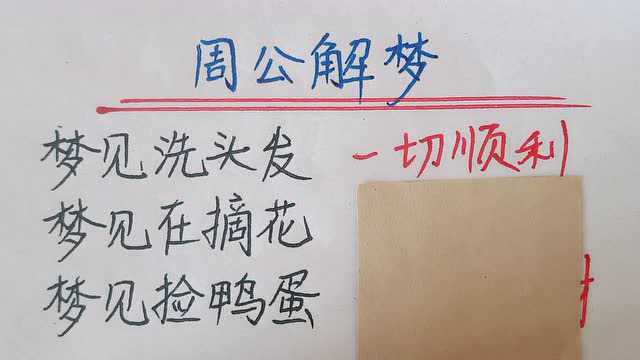 周公解梦
梦见洗头发 一切顺利
梦见在摘花
梦见捡鸭蛋